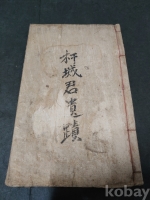 杆城君遺蹟
kobay